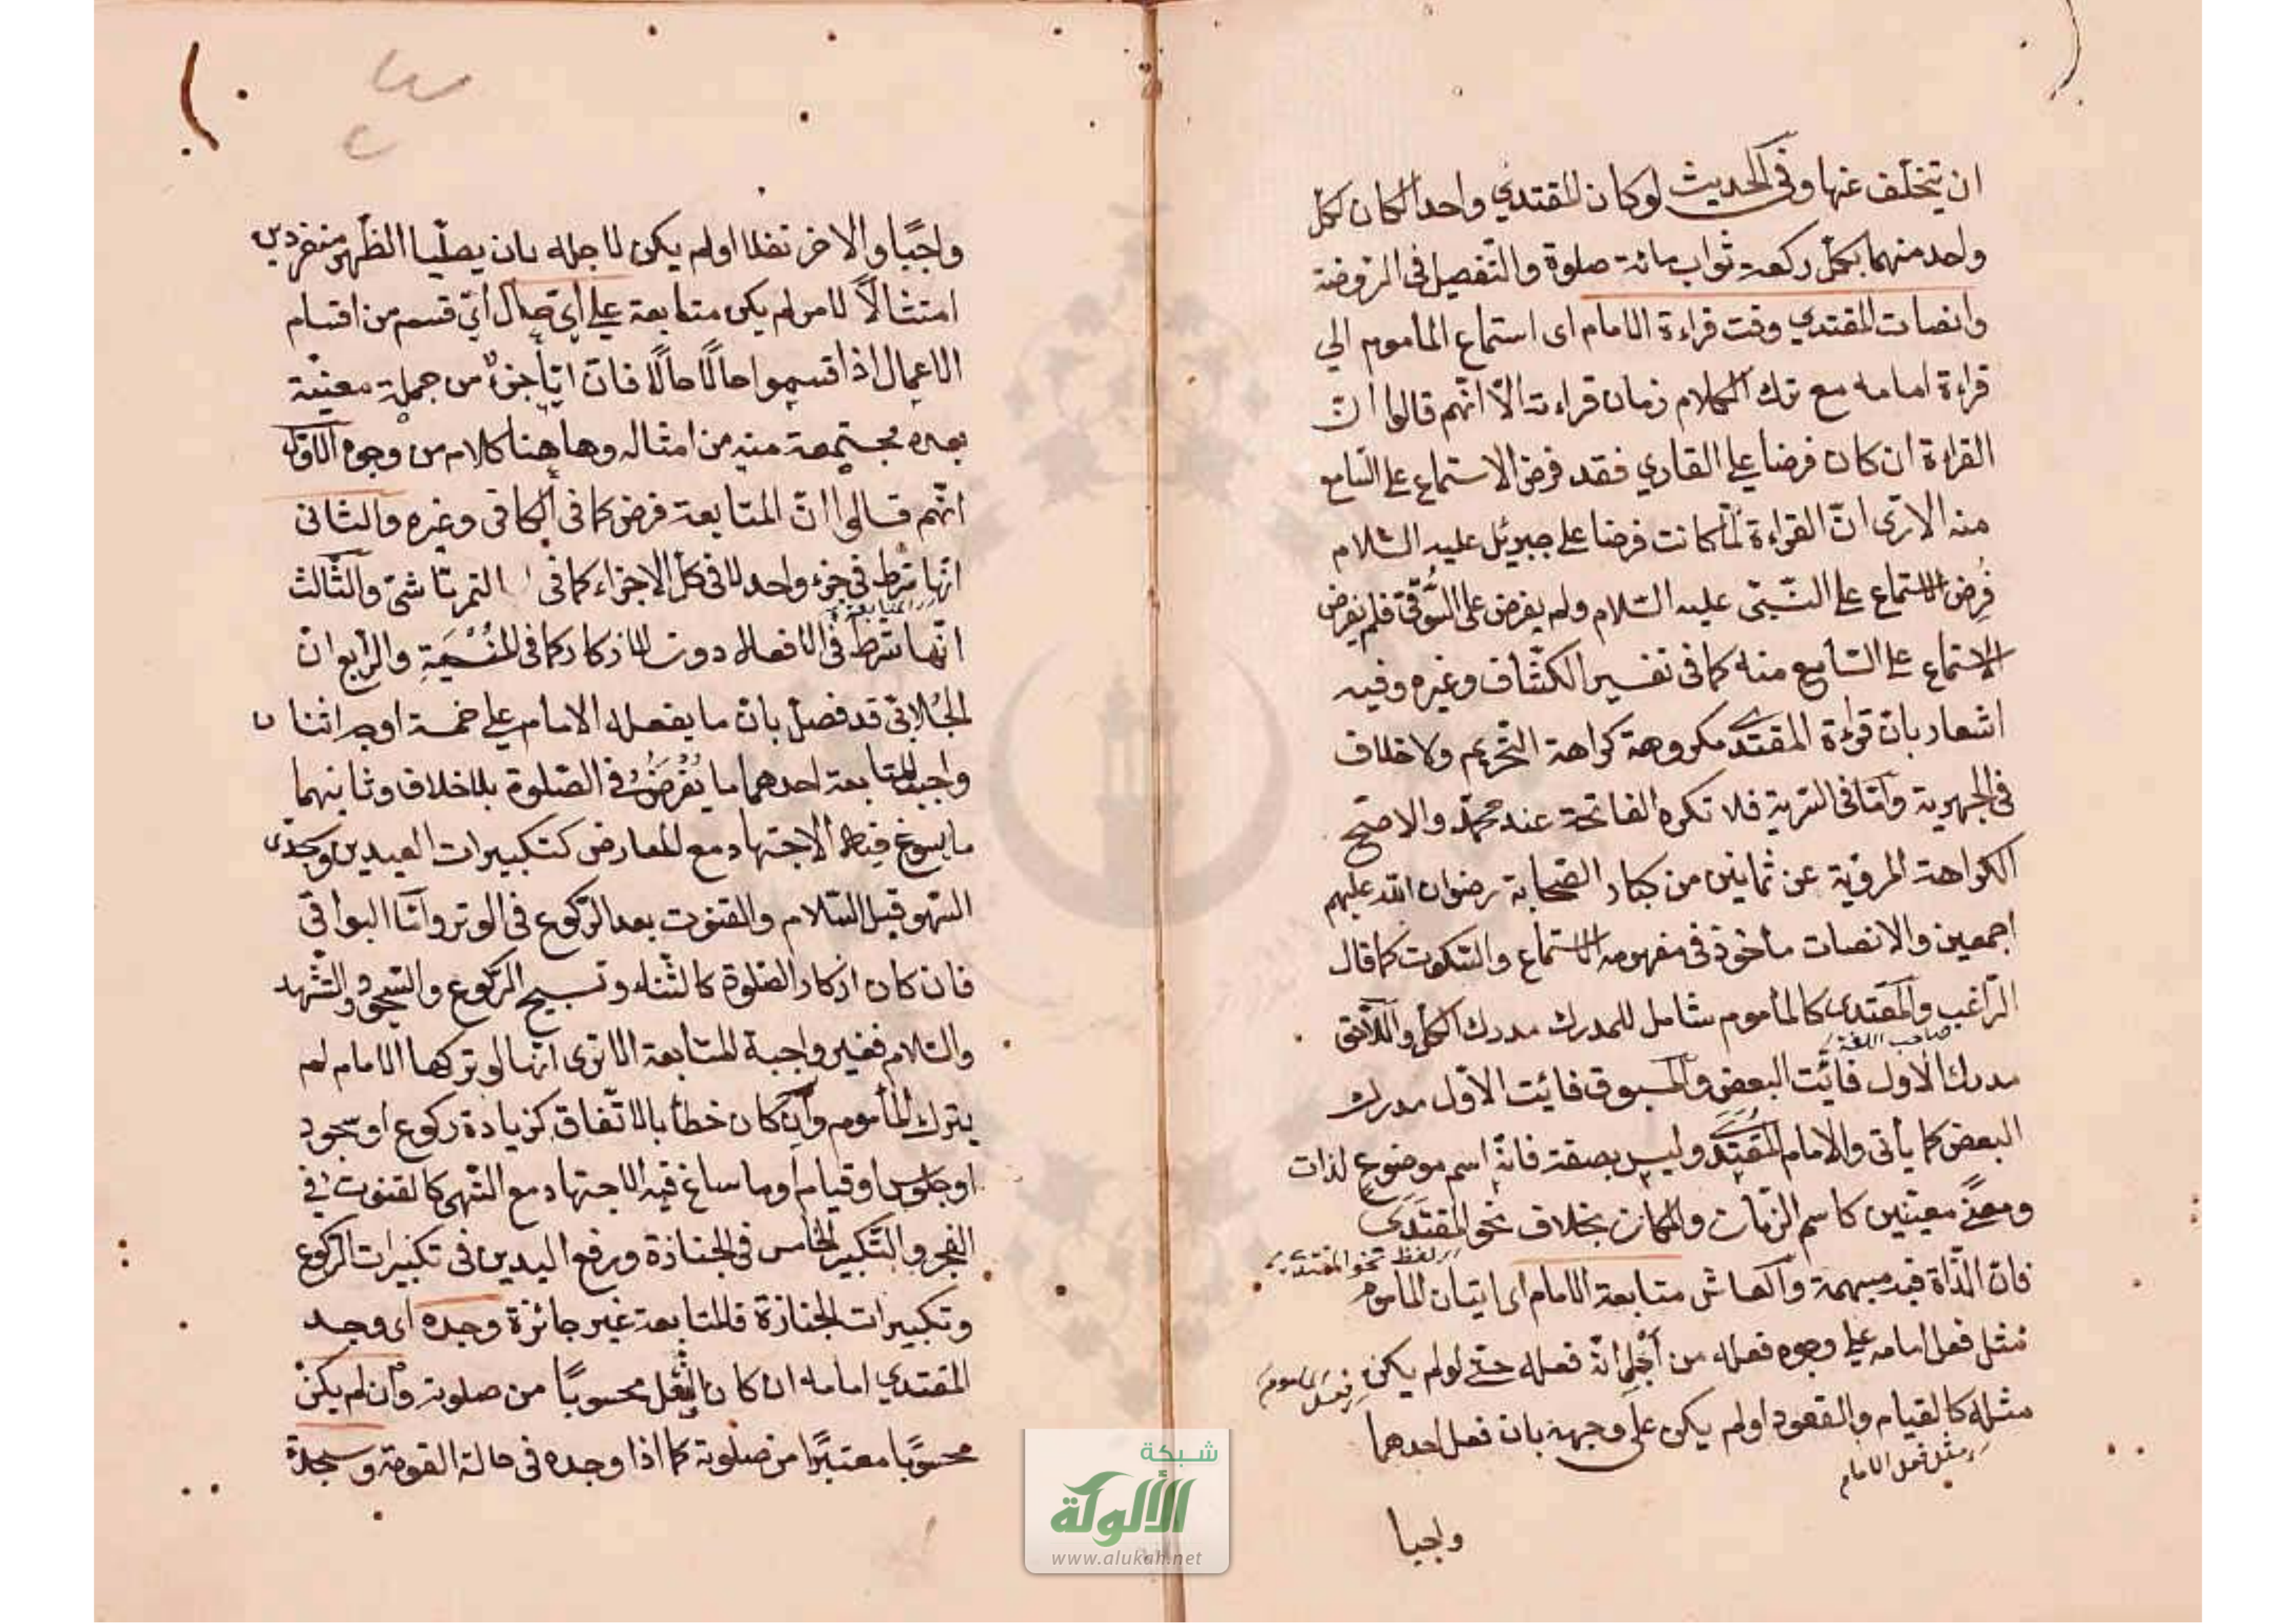 ان يتخلف عنها وفي الحديث لو كان المقتدي واحدا لكان لكل
واحد منهما بكل ركعة ثواب مائة صلوة والتفصيل في الروضة
وانصات المقتدي وقت قراءة الامام اى استماع المأموم الي
قراءة امامه مع ترك الكلام زمان قراءته الّا انّهم قالوا انّ
القراءة ان كان فرضا علي القاري فقد فرض الاستماع علي السّامع
منه الا ترى انّ القراءة لمّا كانت فرضا علي جبريئل عليه السّلام
فُرِض الاستماع علي النّبيّ عليه السّلام ولم يفرض علي السُّوقيّ فلم يفرض
الاستماع علي السّامع منه كما في تفسير الكشّاف وغيره وفيه
اشعار بان قراءة المقتدى مكروهة كراهة التّحريم ولا خلاف
في الجهرية وامّا في السّرية فلا تكره الفاتحة عند محمّد والاصح
الكراهة المرويّة عن ثمانين من كبار الصّحابة رضوان الله عليهم
اجمعين والانصات مأخوذ في مفهومه الاستماع والسّكوت كما قال
الرّاغب والمقتدى كالمأموم شامل للمدرك مدرك الكل واللّاحق
صاحب اللغة
مدرك الاول فائت البعض والمسبوق فائت الاوّل مدرك
البعض كما يأتى والامام المُقتدَى وليس بصفة فانّه اسم موضوع لذات
ومعنًى معينين كاسم الزّمان والمكان بخلاف نحو المقتدَى
لفظ نحو المقتدى
فان الذّاة فيه مبهمة والهاش متابعة الامام اى اتيان المأموم
بمثل فعل امامه علي وجوه فعله من اجل انّه فعله حتّى لو لم يكن
فعل المأموم
مثله كالقيام والقعود او لم يكن على وجهه بان فعل احدهما
مثل فعل الامام
واجبا
واجبًا والاخر نفلا او لم يكن لاجله بان يصلّيا الظّهر منفردين
امتثالًا للامر لم يكن متابعة علي اىّ حال اىّ قسم من اقسام
الاعمال اذا قسموا حالًا حالًا فان ايّا جزءٌ من جملة معيّنة
بعده مجتمعة منه من امثاله وهاهنا كلام من وجوه الاوّل
انّهم قالوا انّ المتابعة فرض كما في الكافى وغيره والثانى
انّها شرط في جزء واحد لا في كلّ الاجزاء كما في التمرتاشىّ والثّالث
المتابعة
انّها شرط في الافعال دون الاذكار كما في المُنْيَةِ والرّابع انّ
الجُلابىّ قد فصّل بانّ ما يفعله الامام علي خمسة اوجه اثنان
واجب المتابعة احدهما ما يُفْرَضُ في الصّلوة بلا خلاف وثانيهما
ما يسوغ فيه الاجتهاد مع المعارض كتكبيرات العيدين وسجدتى
السّهو قبل السّلام والقنوت بعد الرّكوع في الوتر وامّا البواقىّ
فان كان اذكار الصّلوة كالثّناء وتسبيح الرّكوع والسّجود والتّشهد
والسّلام فغير واجبة المتابعة الا ترى انّها لو تركها الامام لم
يترك المأموم وان كان خطأ بالاتّفاق كزيادة ركوع او سجود
او جلوس او قيام او ما ساغ فيه الاجتهاد مع النّهى كالقنوت في
الفجر والتّكبير الخامس في الجنازة ورفع اليدين فى تكبيرات الرّكوع
وتكبيرات الجنازة فالمتابعة غير جائزة وجده اى وجد
المقتدي امامه ان كان الفعل محسوبًا من صلوته وان لم يكن
محسوبًا معتبرًا من صلوته كما اذا وجده في حالة القومة وسجدة
شبكة
الألوكة
www.alukah.net